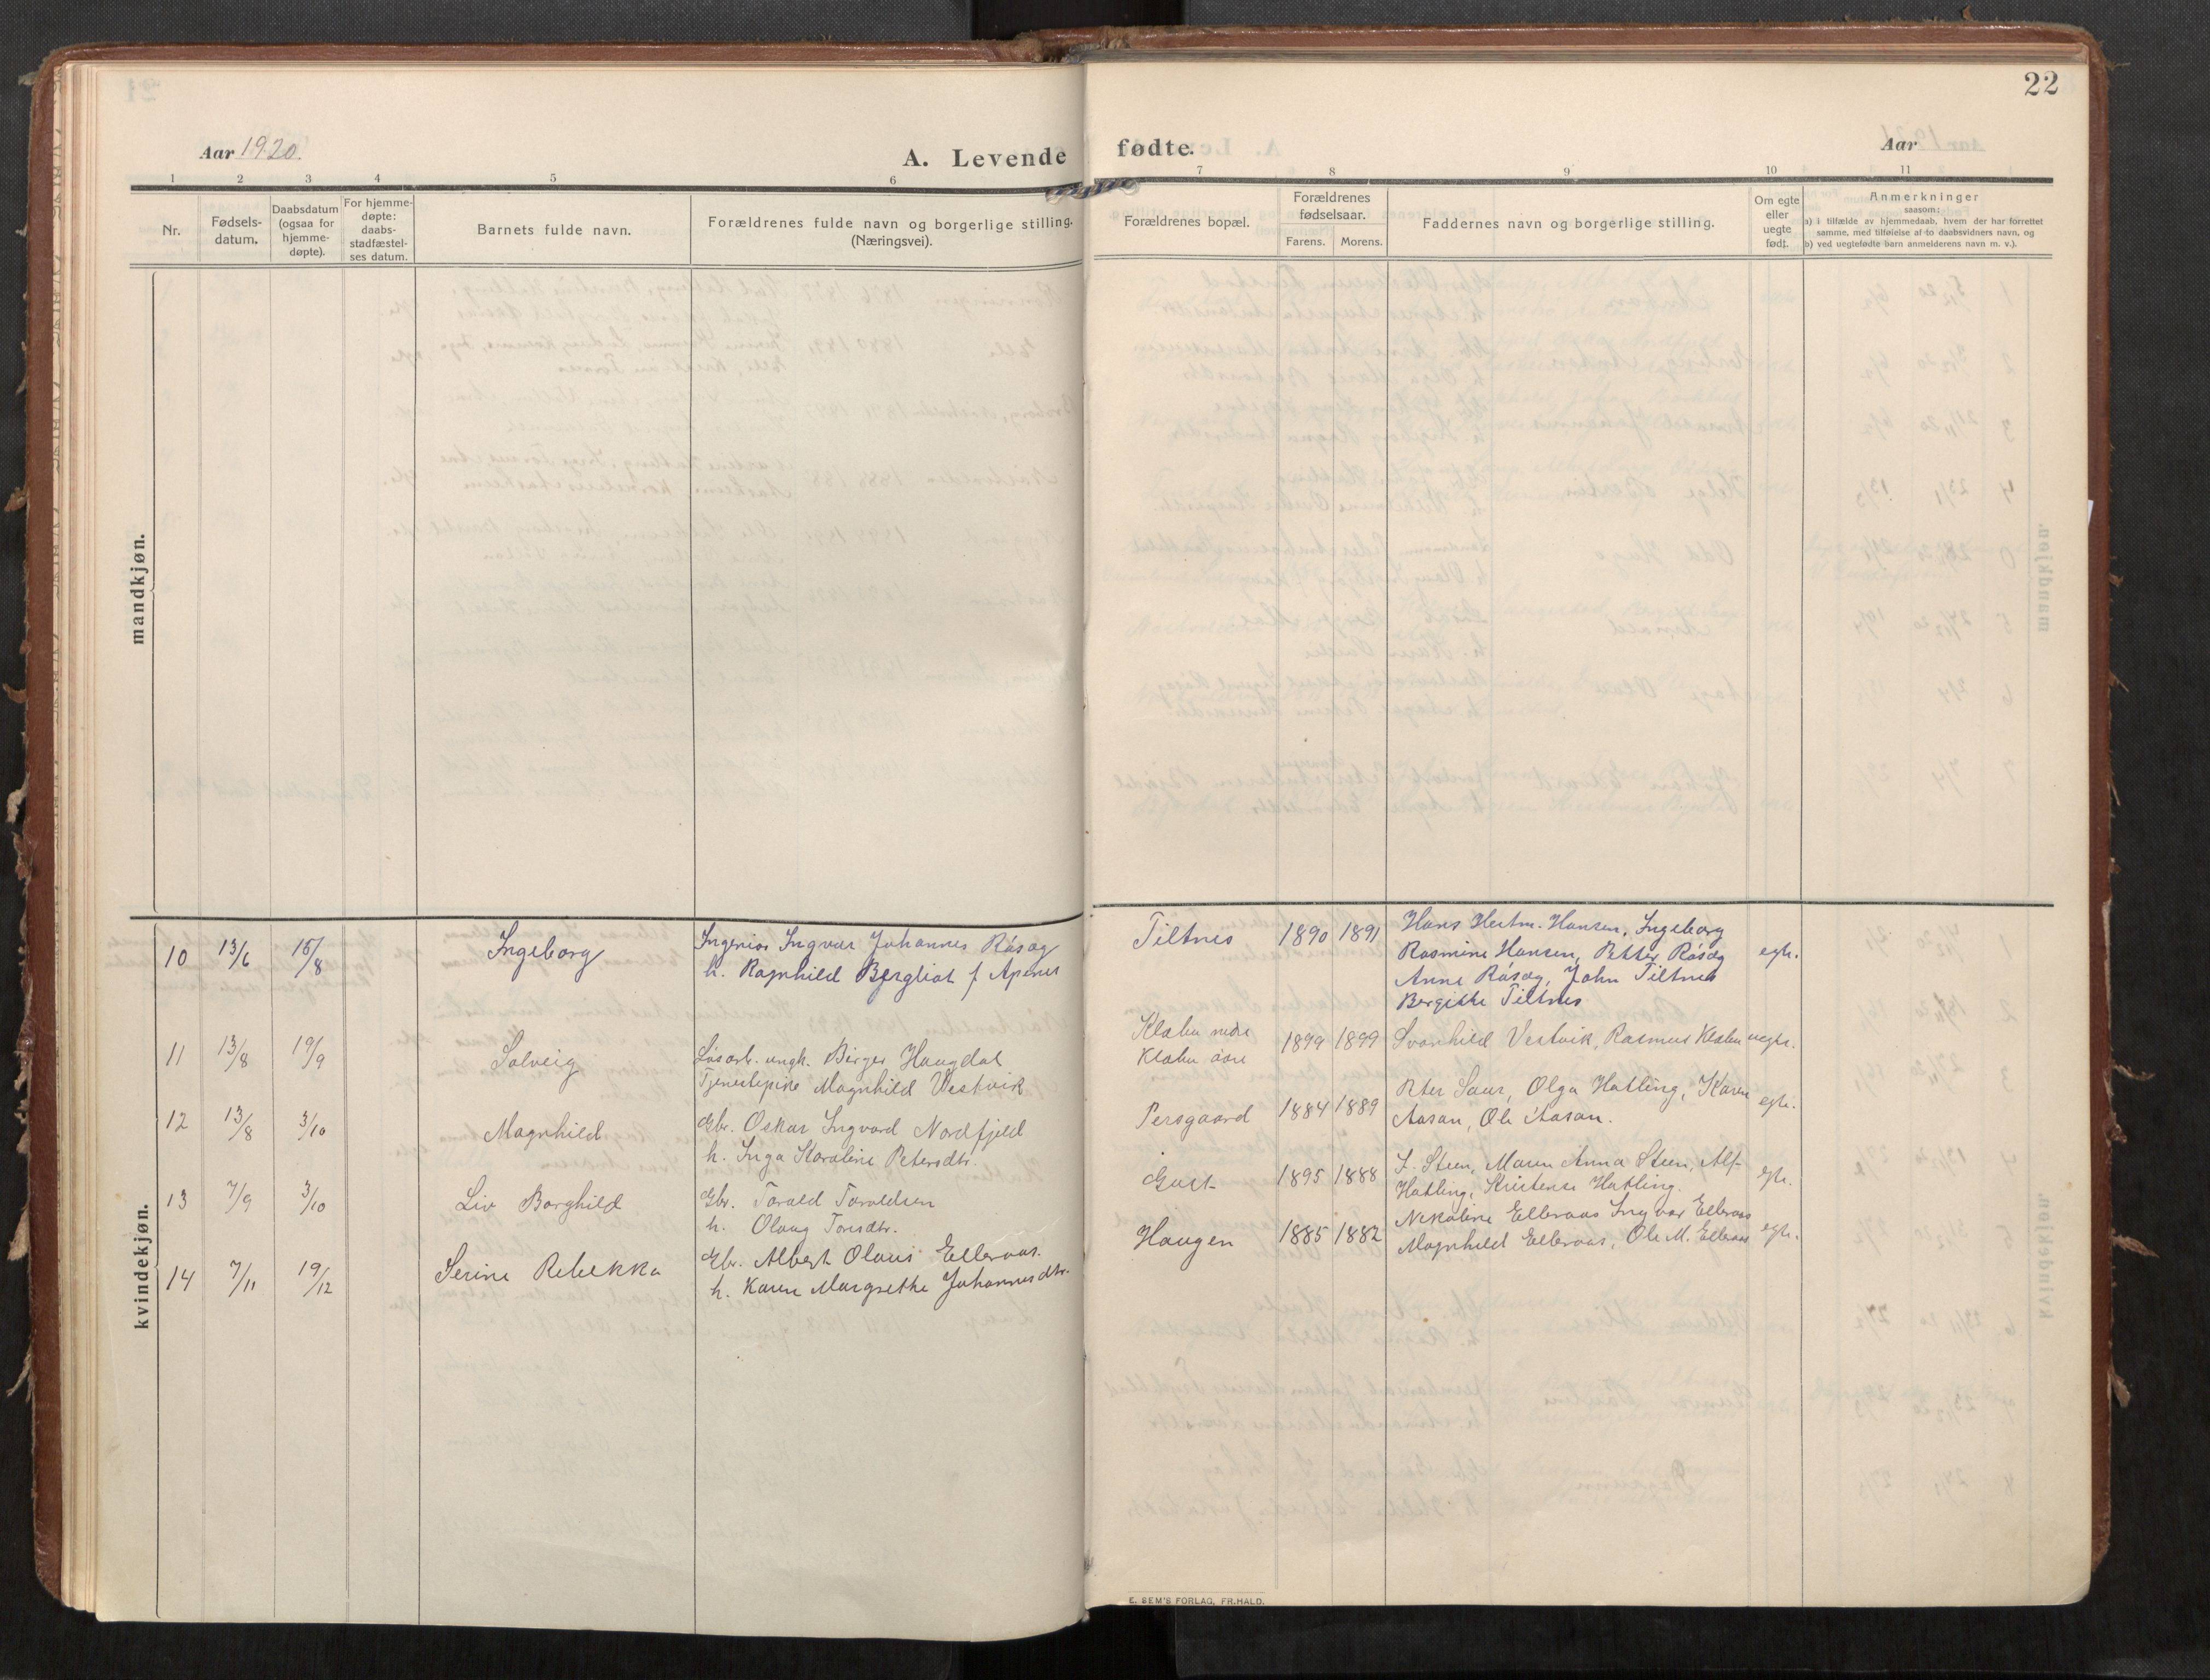 22
Aar 1920.
A. Levende fødte.
Aar
1 2 3 4 5 6 7 8 9 10 11
Nr.
Fødsels-
datum.
Daabsdatum
(ogsaa for
hjemme-
døpte).
For hjemme-
døpte:
daabs-
stadfæstel-
ses datum.
Barnets fulde navn.
Forældrenes fulde navn og borgerlige stilling.
(Næringsvei).
Forældrenes bopæl.
Forældrenes
fødselsaar.
Farens. Morens.
Faddernes navn og borgerlige stilling.
Om egte
eller
uegte
født.
Anmerkninger
saasom:
a) i tilfælde av hjemmedaab, hvem der har forrettet
samme, med tilføielse af to daabsvidners navn, og
b) ved uegtefødte barn anmelderens navn m. v.).
mandkjøn.
kvindekjøn.
10 13/6 15/8 Ingeborg
Ingeniør Ingvar Johannes Råsag
h. Ragnhild Bergliot f
Tiltnes 1890 1891
Hans Hertm. Hansen, Ingeborg
Rasmine Hansen, Petter Råsag
Anne Råsag, John Tiltnes
Bergitte Tiltnes
egte.
11 13/8 19/9 Solveig
Løsarb. ungk. Birger Haugdal
Tjenestepike Magnhild Vestvik
Klæbu nedre
Klæbu øvre
1899 1899
Svanhild Vestvik, Rasmus Klæbu
uegte.
12 13/8 3/10 Magnhild
Gbr. Oskar Ingvard Nordfjeld
h. Inga Karoline Petersdtr.
Persgaard 1884 1889
Peter Saur, Olga Hatling, Karen
Aasan, Ole Aasan.
egte.
13 7/9 3/10 Liv Borghild
Gbr. Torald Toraldsen
h. Olaug Toresdtr.
1895 1888
Steen, Maren Anna Steen, Alf
Hatling, Kristense Hatling.
egte.
14 7/11 19/12 Serine Rebekka
Gbr. Albert Olaus Elleraas.
h. Karen Margrethe Johannesdtr.
Haugen 1885 1882
Nekoline Elleraas Ingvar Elleraas
Magnhild Elleraas, Ole M. Elleraas
egte.
E. SEM'S FORLAG, FR.HALD.